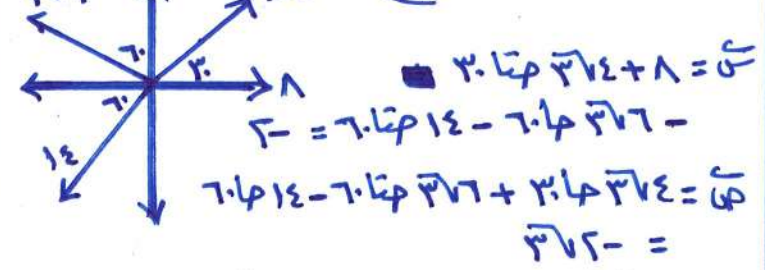 ٦٠
٣٠
٨
٦٠
١٤
س = ٨ + ٤√٣ حتا ٣٠
- ٦√٣ حا ٦٠ - ١٤ حتا ٦٠ = -٢
ص = ٤√٣ حا ٣٠ + ٦√٣ حتا ٦٠ - ١٤ حا ٦٠
= -٢√٣